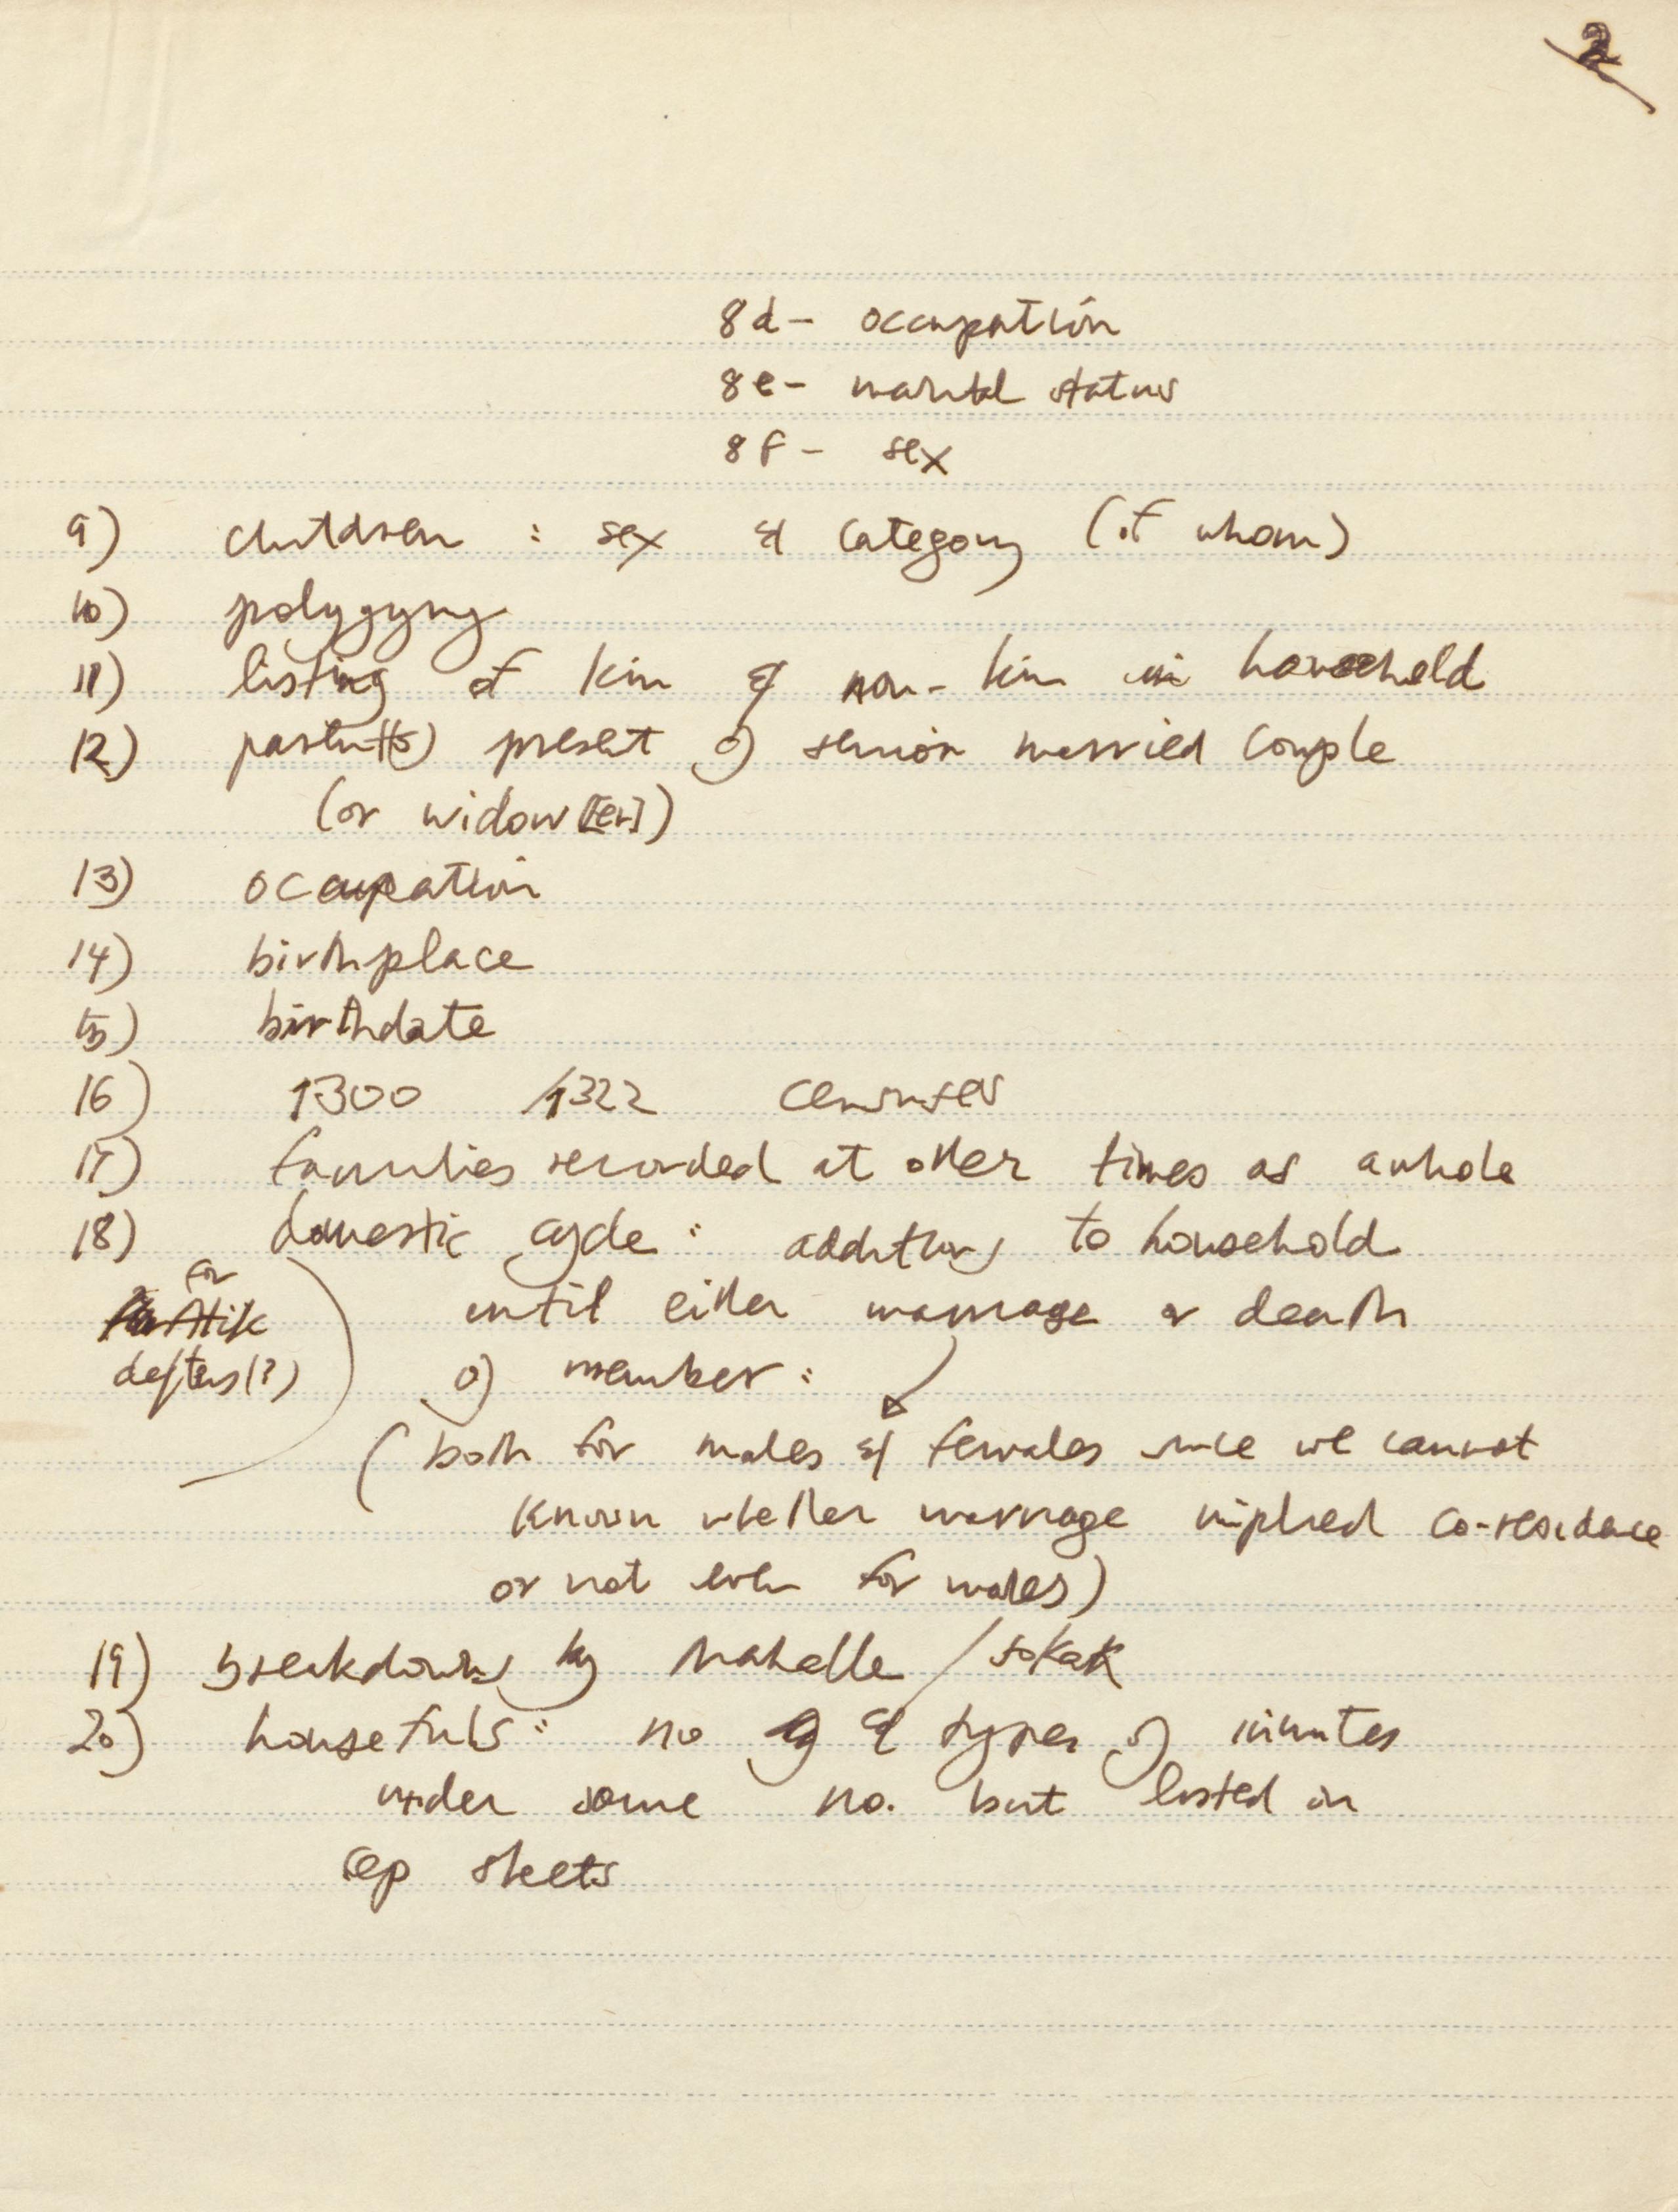 2
8d - occupation
8e - marital status
8f - sex
9) children : sex & category (of whom)
10) polygyny
11) listing of kin & non-kin in household
12) parent(s) present of senior married couple
(or widow[er])
13) occupation
14) birthplace
15) birthdate
16) 1300 1322 censuses
17) families recorded at other times as a whole
18) domestic cycle : additions to household
for
Atik
defters(?)
until either marriage or death
of member :
(both for males & females since we cannot
known whether marriage implied co-residence
or not even for males)
19) breakdowns by mahalle / sokak
20) housefuls : no & types of
under same no. but listed in
sep sheets